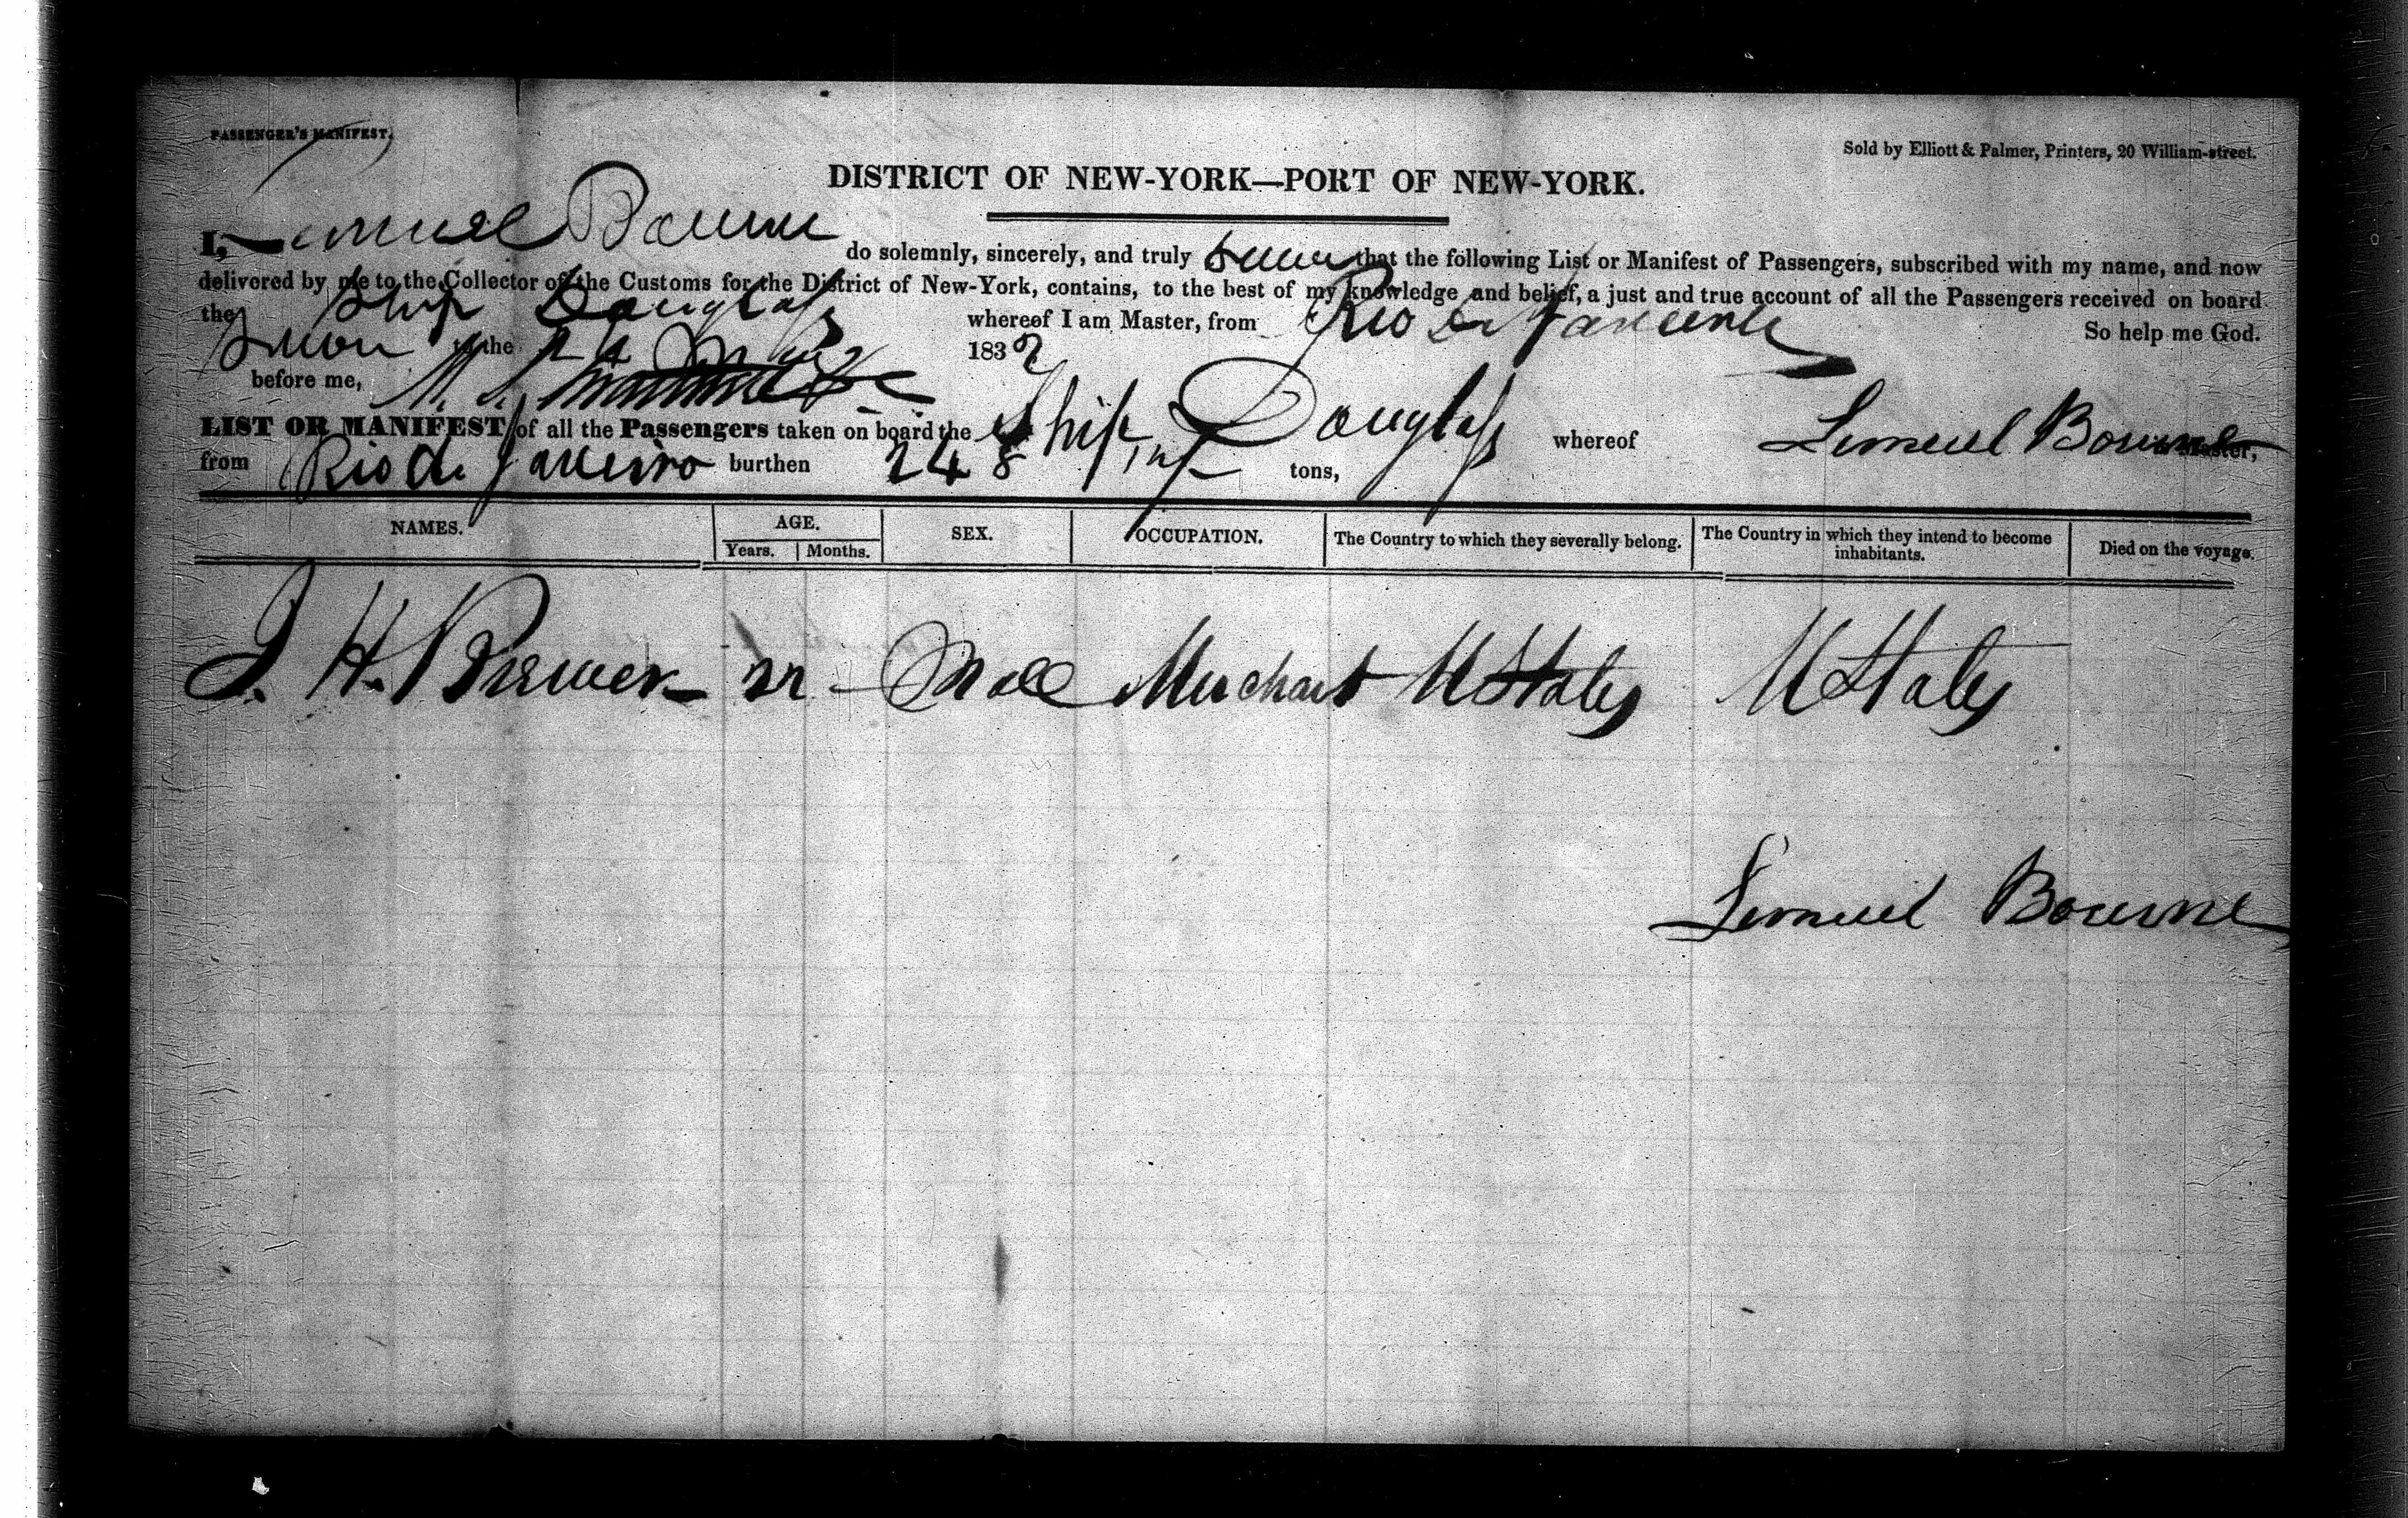 PASSENGER'S MANIFEST.
Sold by Elliott & Palmer, Printers, 20 William-street.
DISTRICT OF NEW-YORK—PORT OF NEW-YORK.
I, Lemuel Bourne do solemnly, sincerely, and truly swear that the following List or Manifest of Passengers, subscribed with my name, and now
delivered by me to the Collector of the Customs for the District of New-York, contains, to the best of my knowledge and belief, a just and true account of all the Passengers received on board
the Ship Douglass whereof I am Master, from Rio de Janeiro So help me God.
Sworn to the 183
before me,
LIST OR MANIFEST of all the Passengers taken on board the Ship Douglass whereof Lemuel Bourne is Master,
from Rio de Janeiro burthen 248 tons,
NAMES. AGE. SEX. OCCUPATION. The Country to which they severally belong. The Country in which they intend to become inhabitants. Died on the voyage.
Years. Months.
J. H. Brewer Male Merchant U States U States
Lemuel Bourne